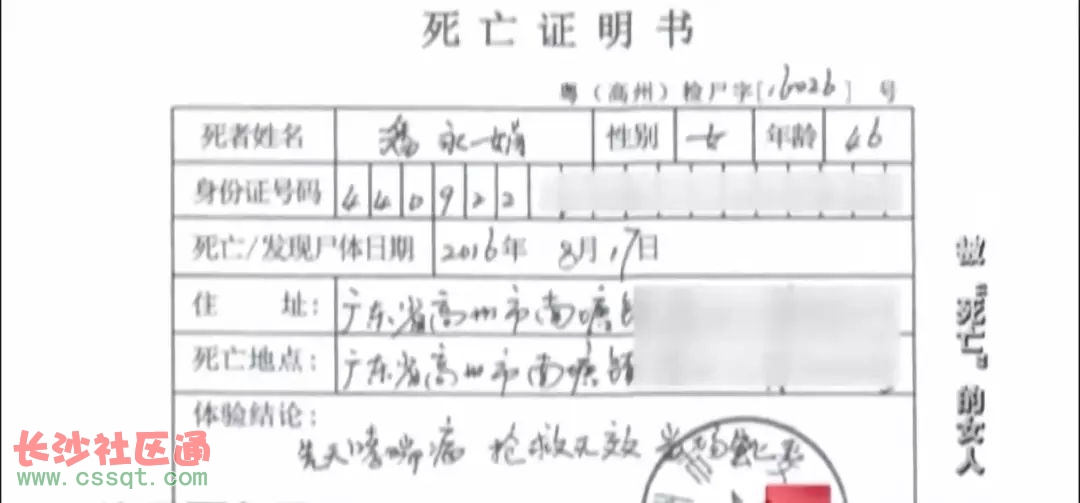 死亡证明书
粤(高州)检尸字[16026] 号
死者姓名 永娟 性别 女 年龄 46
身份证号码 440922
死亡/发现尸体日期 2016年 8月17日
住 址: 广东省高州市南塘
死亡地点: 广东省高州市南塘镇
体验结论:
先天哮喘病 抢救无效 当场死亡
被"死亡"的女人
长沙社区通
www.cssqt.com